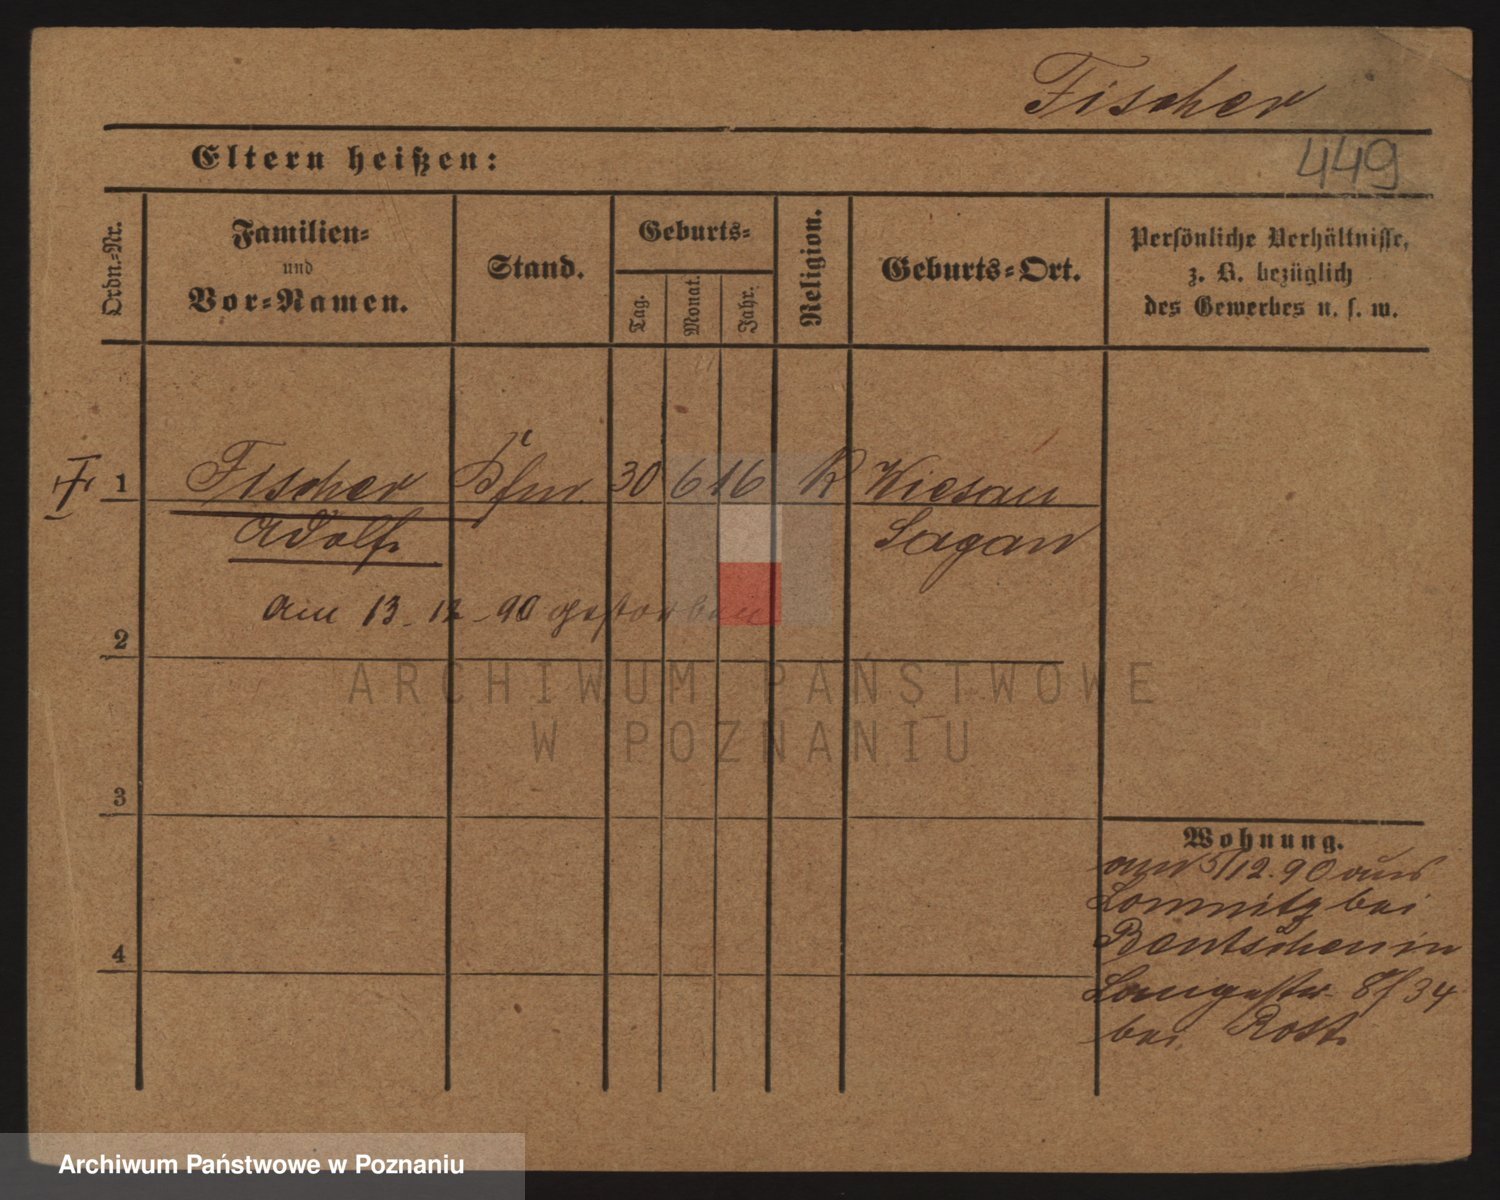 Fischer
449
Eltern heißen:
Ordn.-Nr.
Familien-
und
Vor-Namen.
Stand.
Geburts-
Tag.
Monat.
Jahr.
Religion.
Geburts-Ort.
Persönliche Verhältnisse,
z. B. bezüglich
des Gewerbes u. s. w.
1
Fischer
30 6 16
K
Wiesau
Adolf
Sagan
am 13.12.90 gestorben
2
3
4
Wohnung.
5/12.90 aus
Lomnitz bei
Bentschen in
Langestr. 8/34
bei Rost.
ARCHIWUM PAŃSTWOWE
W POZNANIU
Archiwum Państwowe w Poznaniu